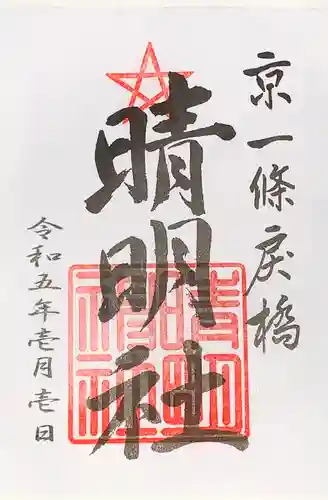 京一條戻橋
晴明社
令和五年壱月壱日
晴明神社